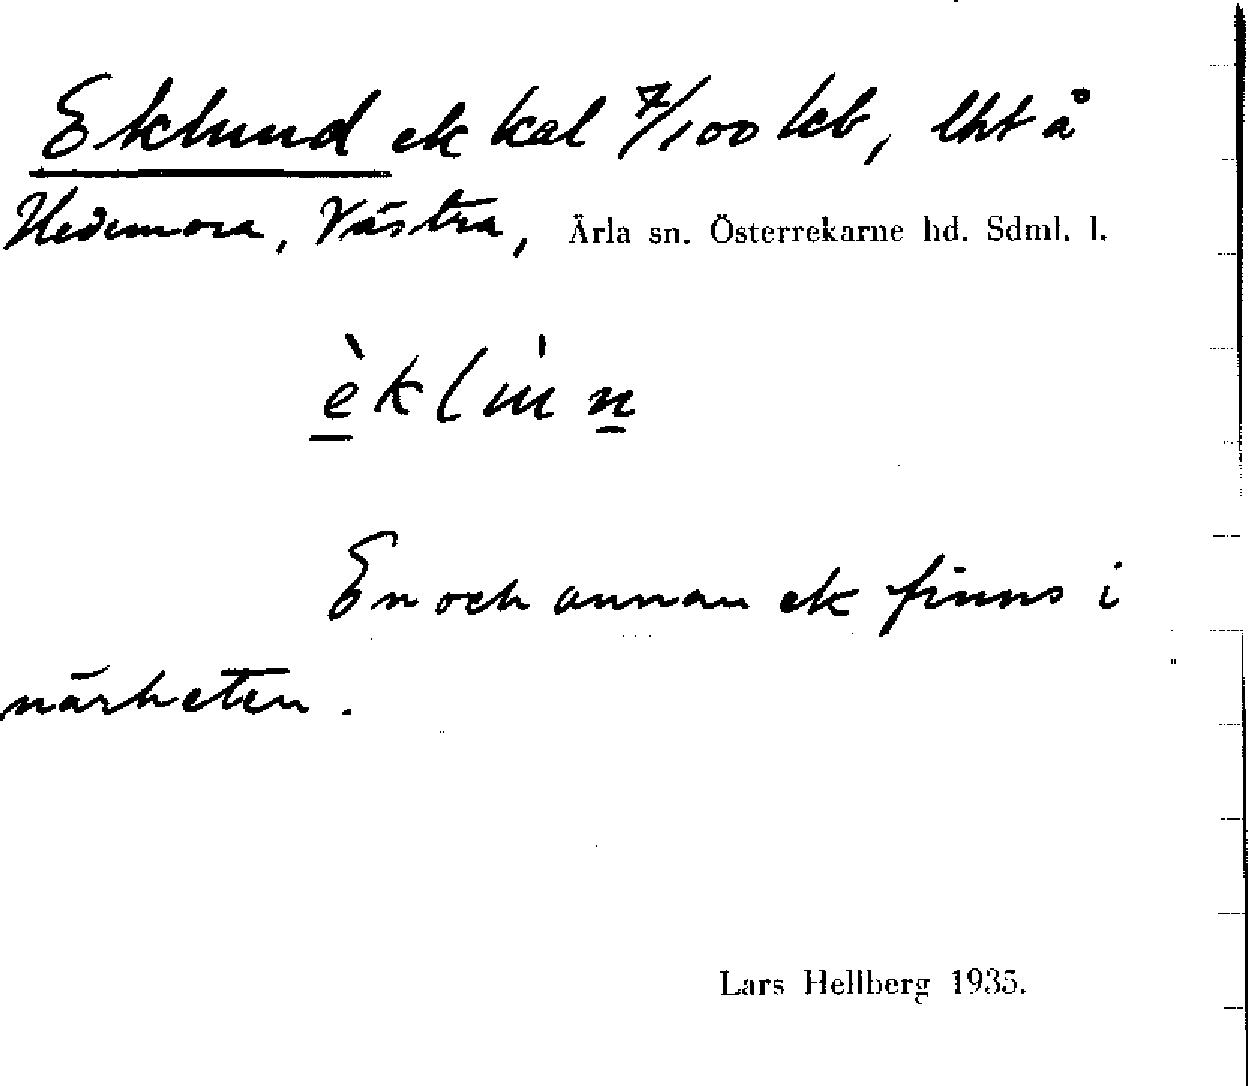 Eklund ek kal 7/100 kb, lht å
Hedemora, Västra, Ärla sn. Österrekarne hd. Sdml. l.
En och annan ek finns i
närheten.
Lars Hellberg 1935.